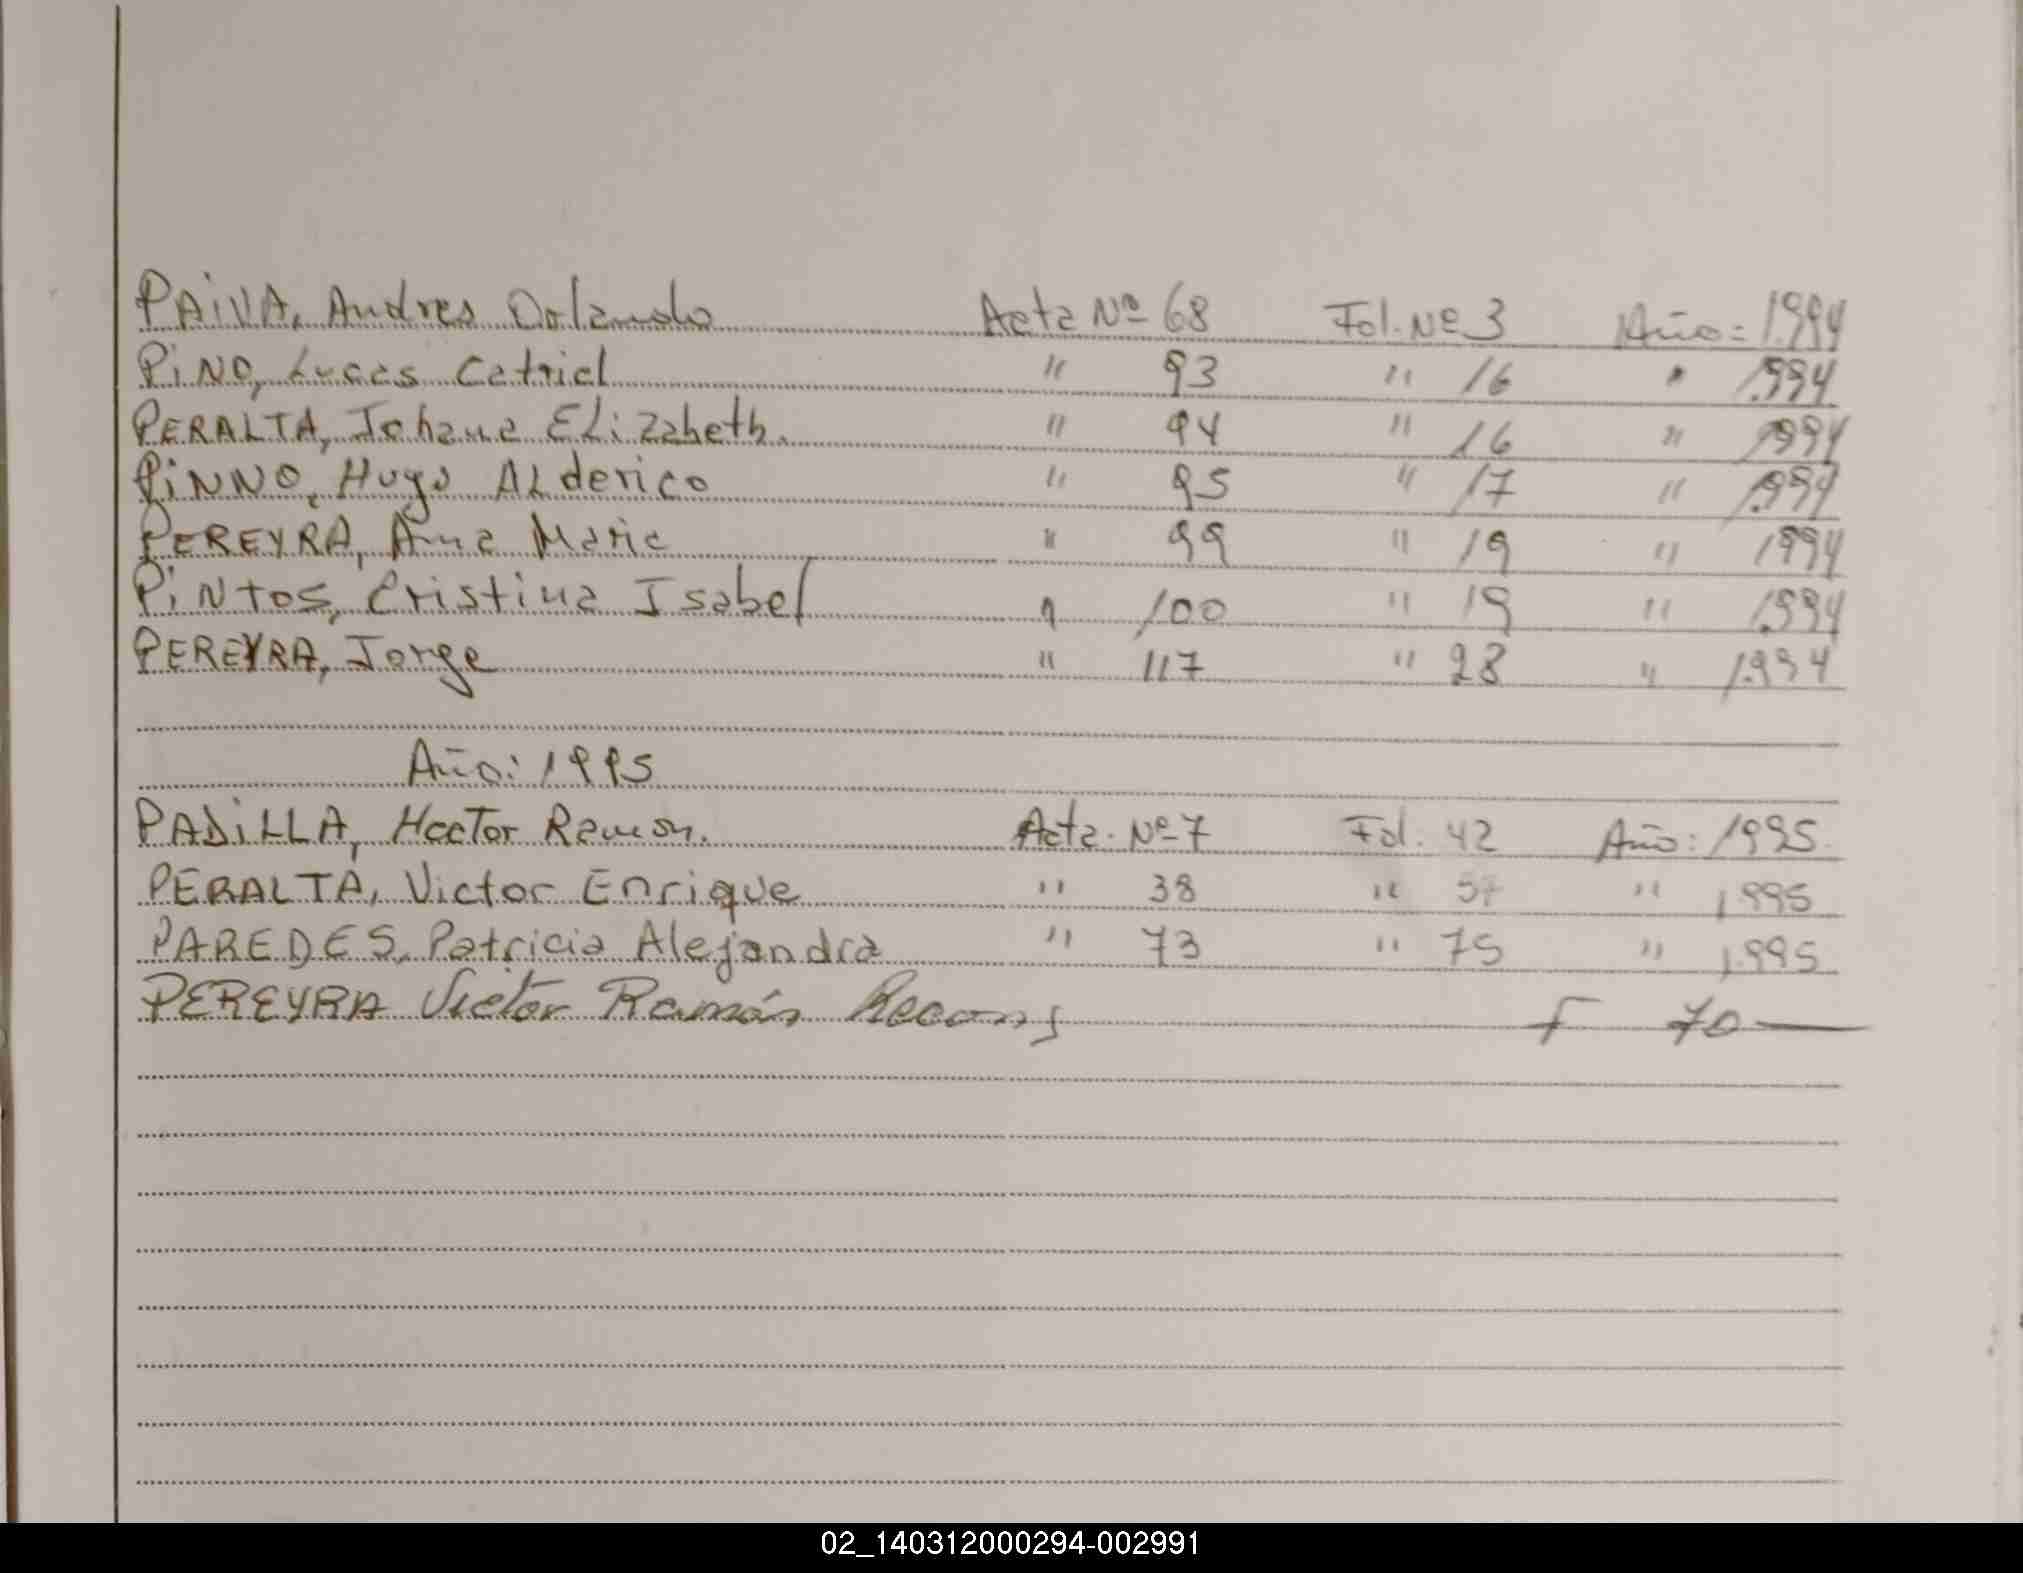 PAIVA, Andres Orlando Acta Nº 68 Fol. Nº 3 Año = 1.994
PiNO, Lucas Catriel " 93 " 16 " 1.994
PERALTA, Johana Elizabeth. " 94 " 16 " 1.994
PiNNO, Hugo ALderico " 95 " 17 " 1.994
PEREYRA, Ana Maria " 99 " 19 " 1994
PiNtos, Cristina Isabel " 100 " 19 " 1.994
PEREYRA, Jorge " 117 " 28 " 1.994
Año: 1995
PADiLLA, Hector Ramon. Acta Nº 7 Fol. 42 Año: 1995.
PERALTA, Victor Enrique " 38 " 57 " 1.995
PAREDES, Patricia Alejandra " 73 " 75 " 1.995
PEREYRA Victor Ramón Recons F 70 —
02_140312000294-002991